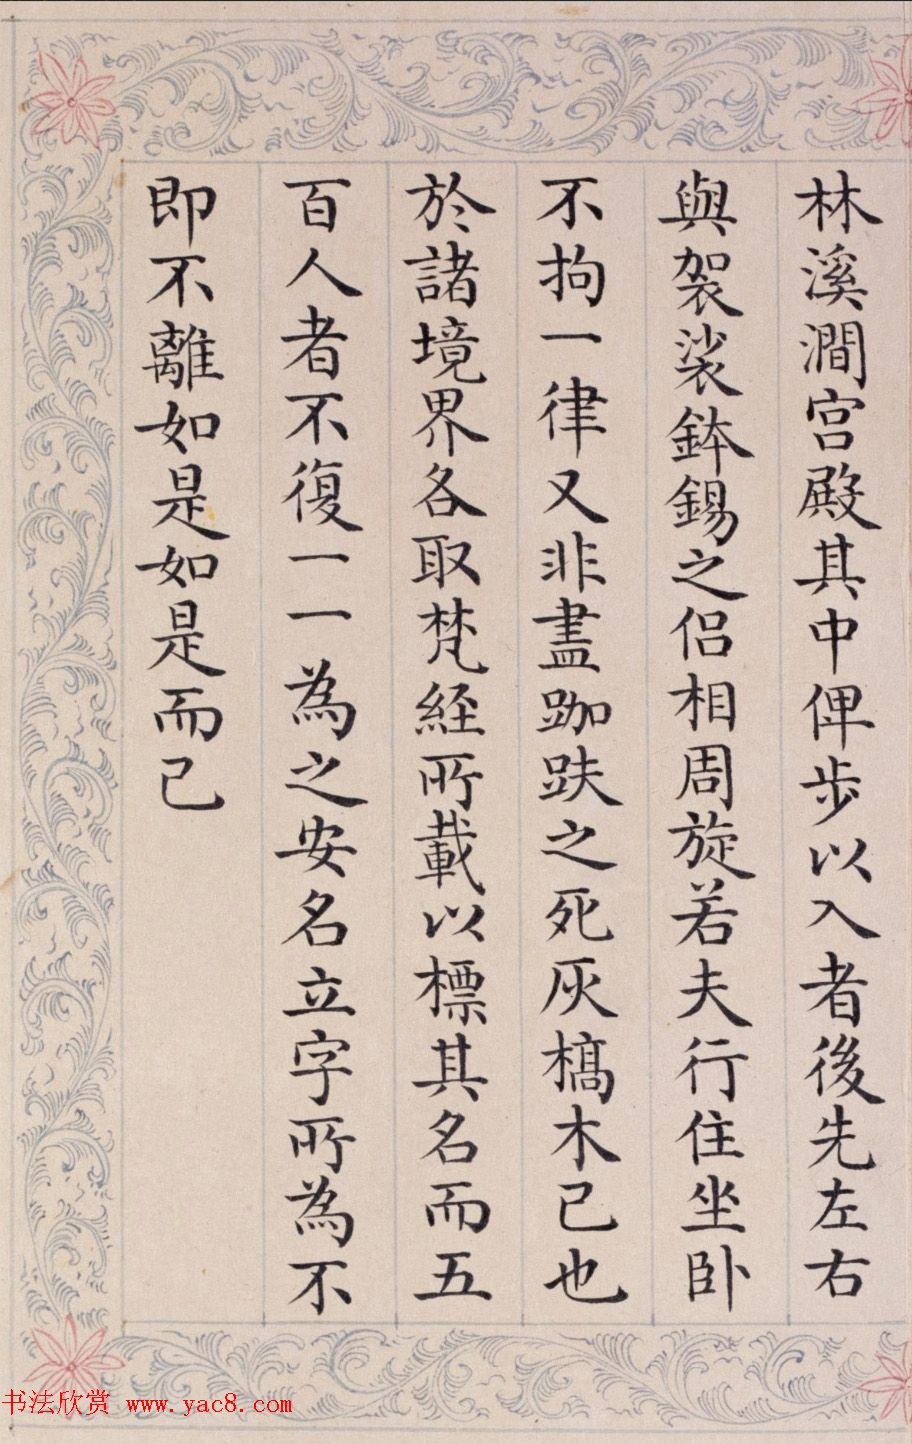 林溪澗宮殿其中俾步以入者後先左右
與袈裟鉢錫之侣相周旋若夫行住坐卧
不拘一律又非盡跏趺之死灰槁木已也
於諸境界各取梵經所載以標其名而五
百人者不復一一為之安名立字所為不
即不離如是如是而已
书法欣赏 www.yac8.com